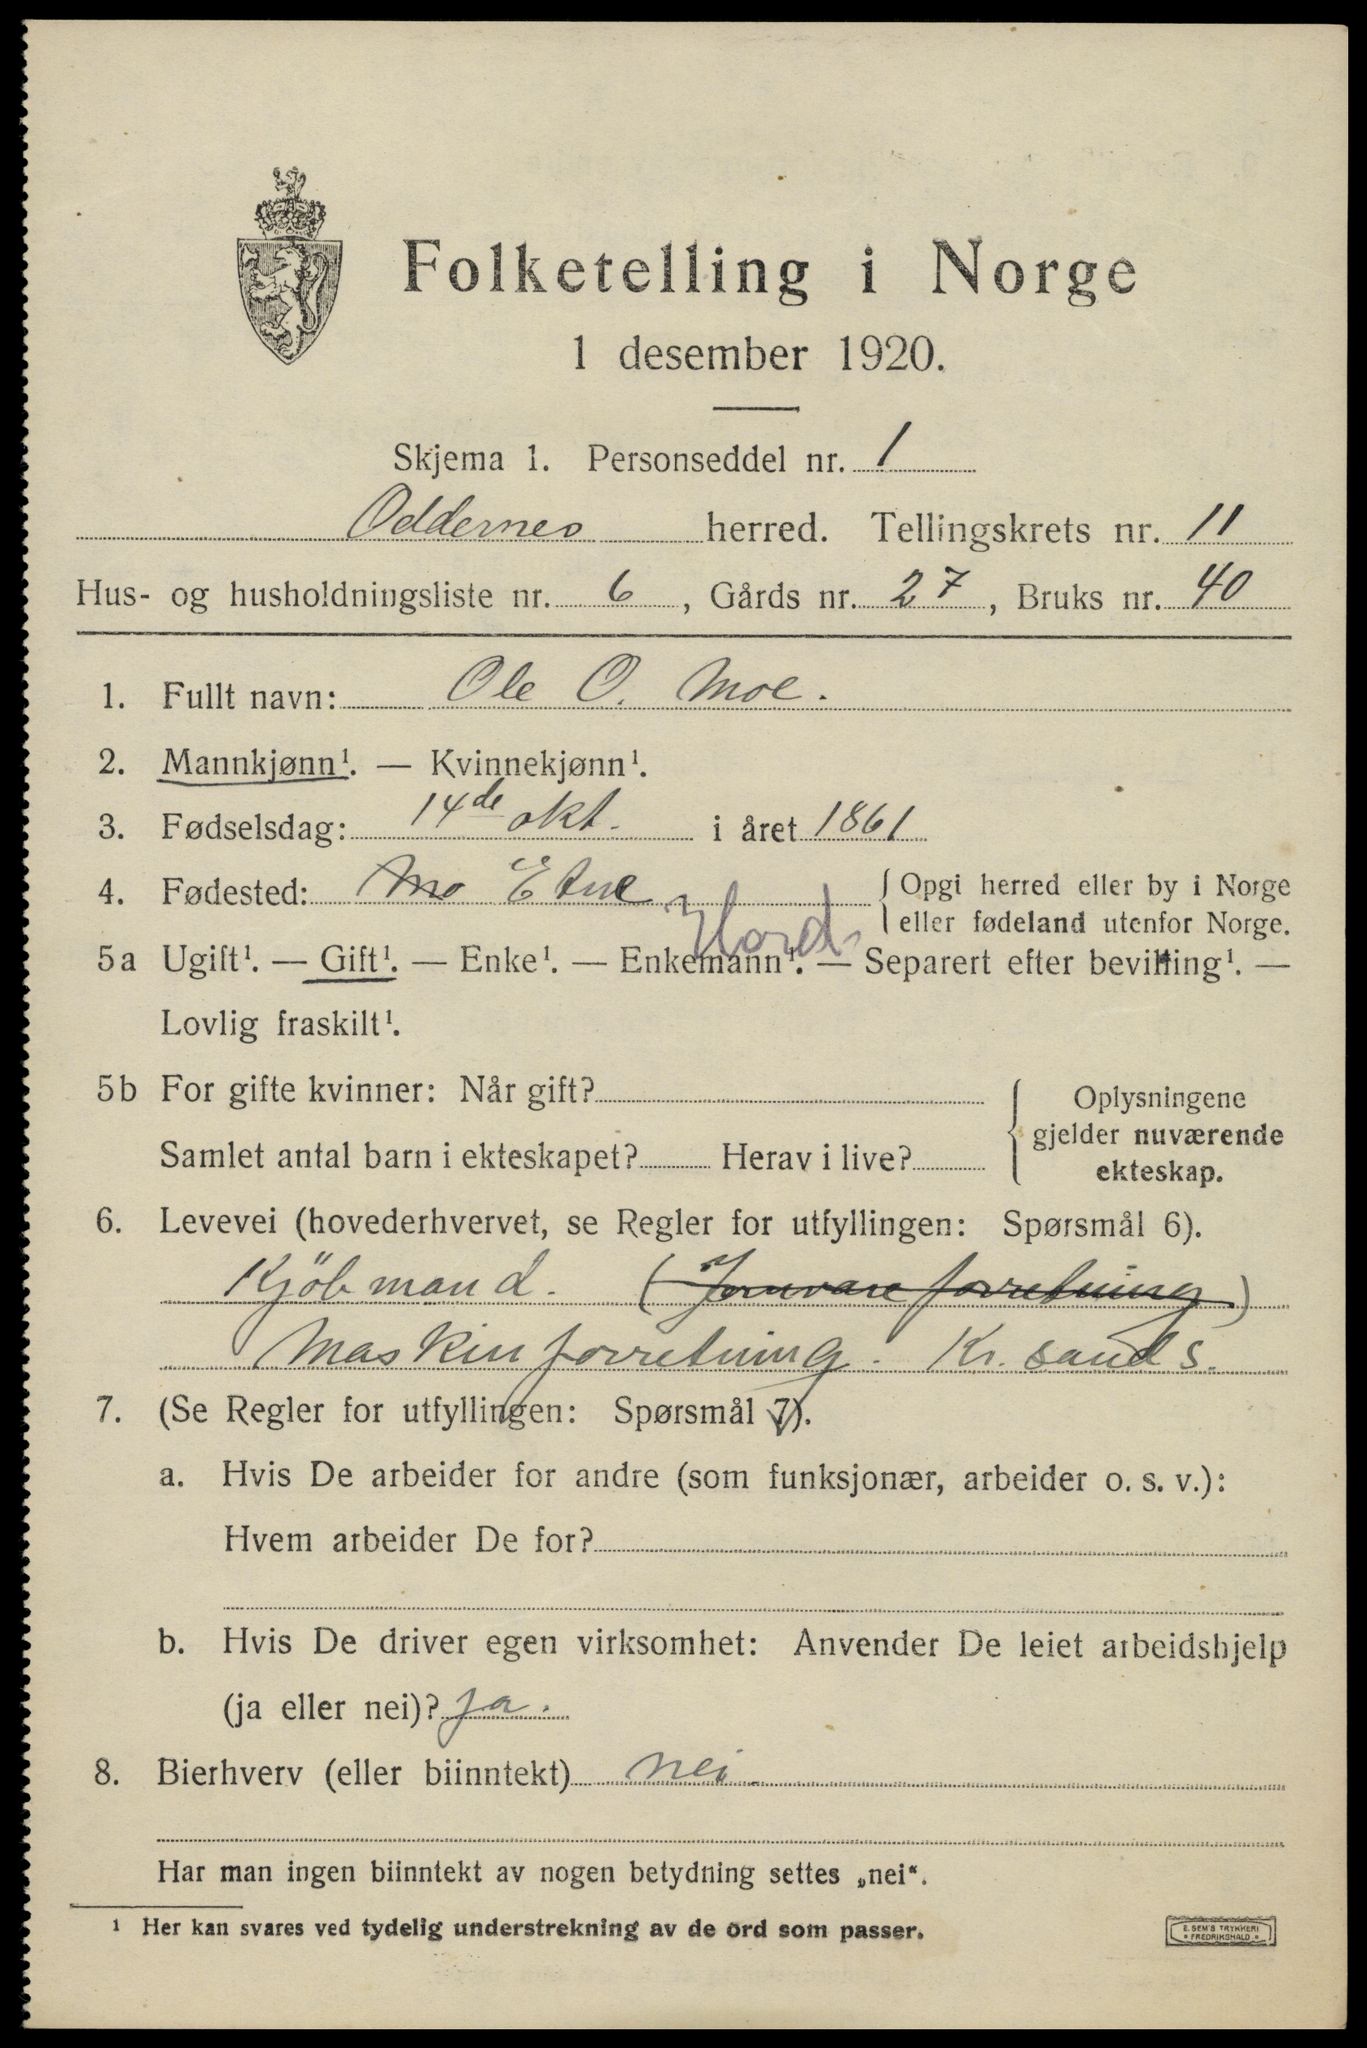 Folketelling i Norge
1 desember 1920.
Skjema 1. Personseddel nr. 1
Oddernes herred. Tellingskrets nr. 11
Hus- og husholdningsliste nr. 6, Gårds nr. 27, Bruks nr. 40
1. Fullt navn: Ole O. Moe.
2. Mannkjønn¹. — Kvinnekjønn¹.
3. Fødselsdag: 14de okt. i året 1861
4. Fødested: Mo Etne Hord. Opgi herred eller by i Norge
eller fødeland utenfor Norge.
5a Ugift¹. — Gift¹. — Enke¹. — Enkemann¹. — Separert efter bevilling¹. —
Lovlig fraskilt¹.
5b For gifte kvinner: Når gift?
Samlet antal barn i ekteskapet? Herav i live?
Oplysningene
gjelder nuværende
ekteskap.
6. Levevei (hovederhvervet, se Regler for utfyllingen: Spørsmål 6).
Kjöbmand. (Jernvare forretning)
Maskinforretning. Kr. sand S.
7. (Se Regler for utfyllingen: Spørsmål 7).
a. Hvis De arbeider for andre (som funksjonær, arbeider o. s. v.):
Hvem arbeider De for?
b. Hvis De driver egen virksomhet: Anvender De leiet arbeidshjelp
(ja eller nei)? ja.
8. Bierhverv (eller biinntekt) nei.
Har man ingen biinntekt av nogen betydning settes „nei“.
¹ Her kan svares ved tydelig understrekning av de ord som passer.
E. SEM'S TRYKKERI
FREDRIKSHALD